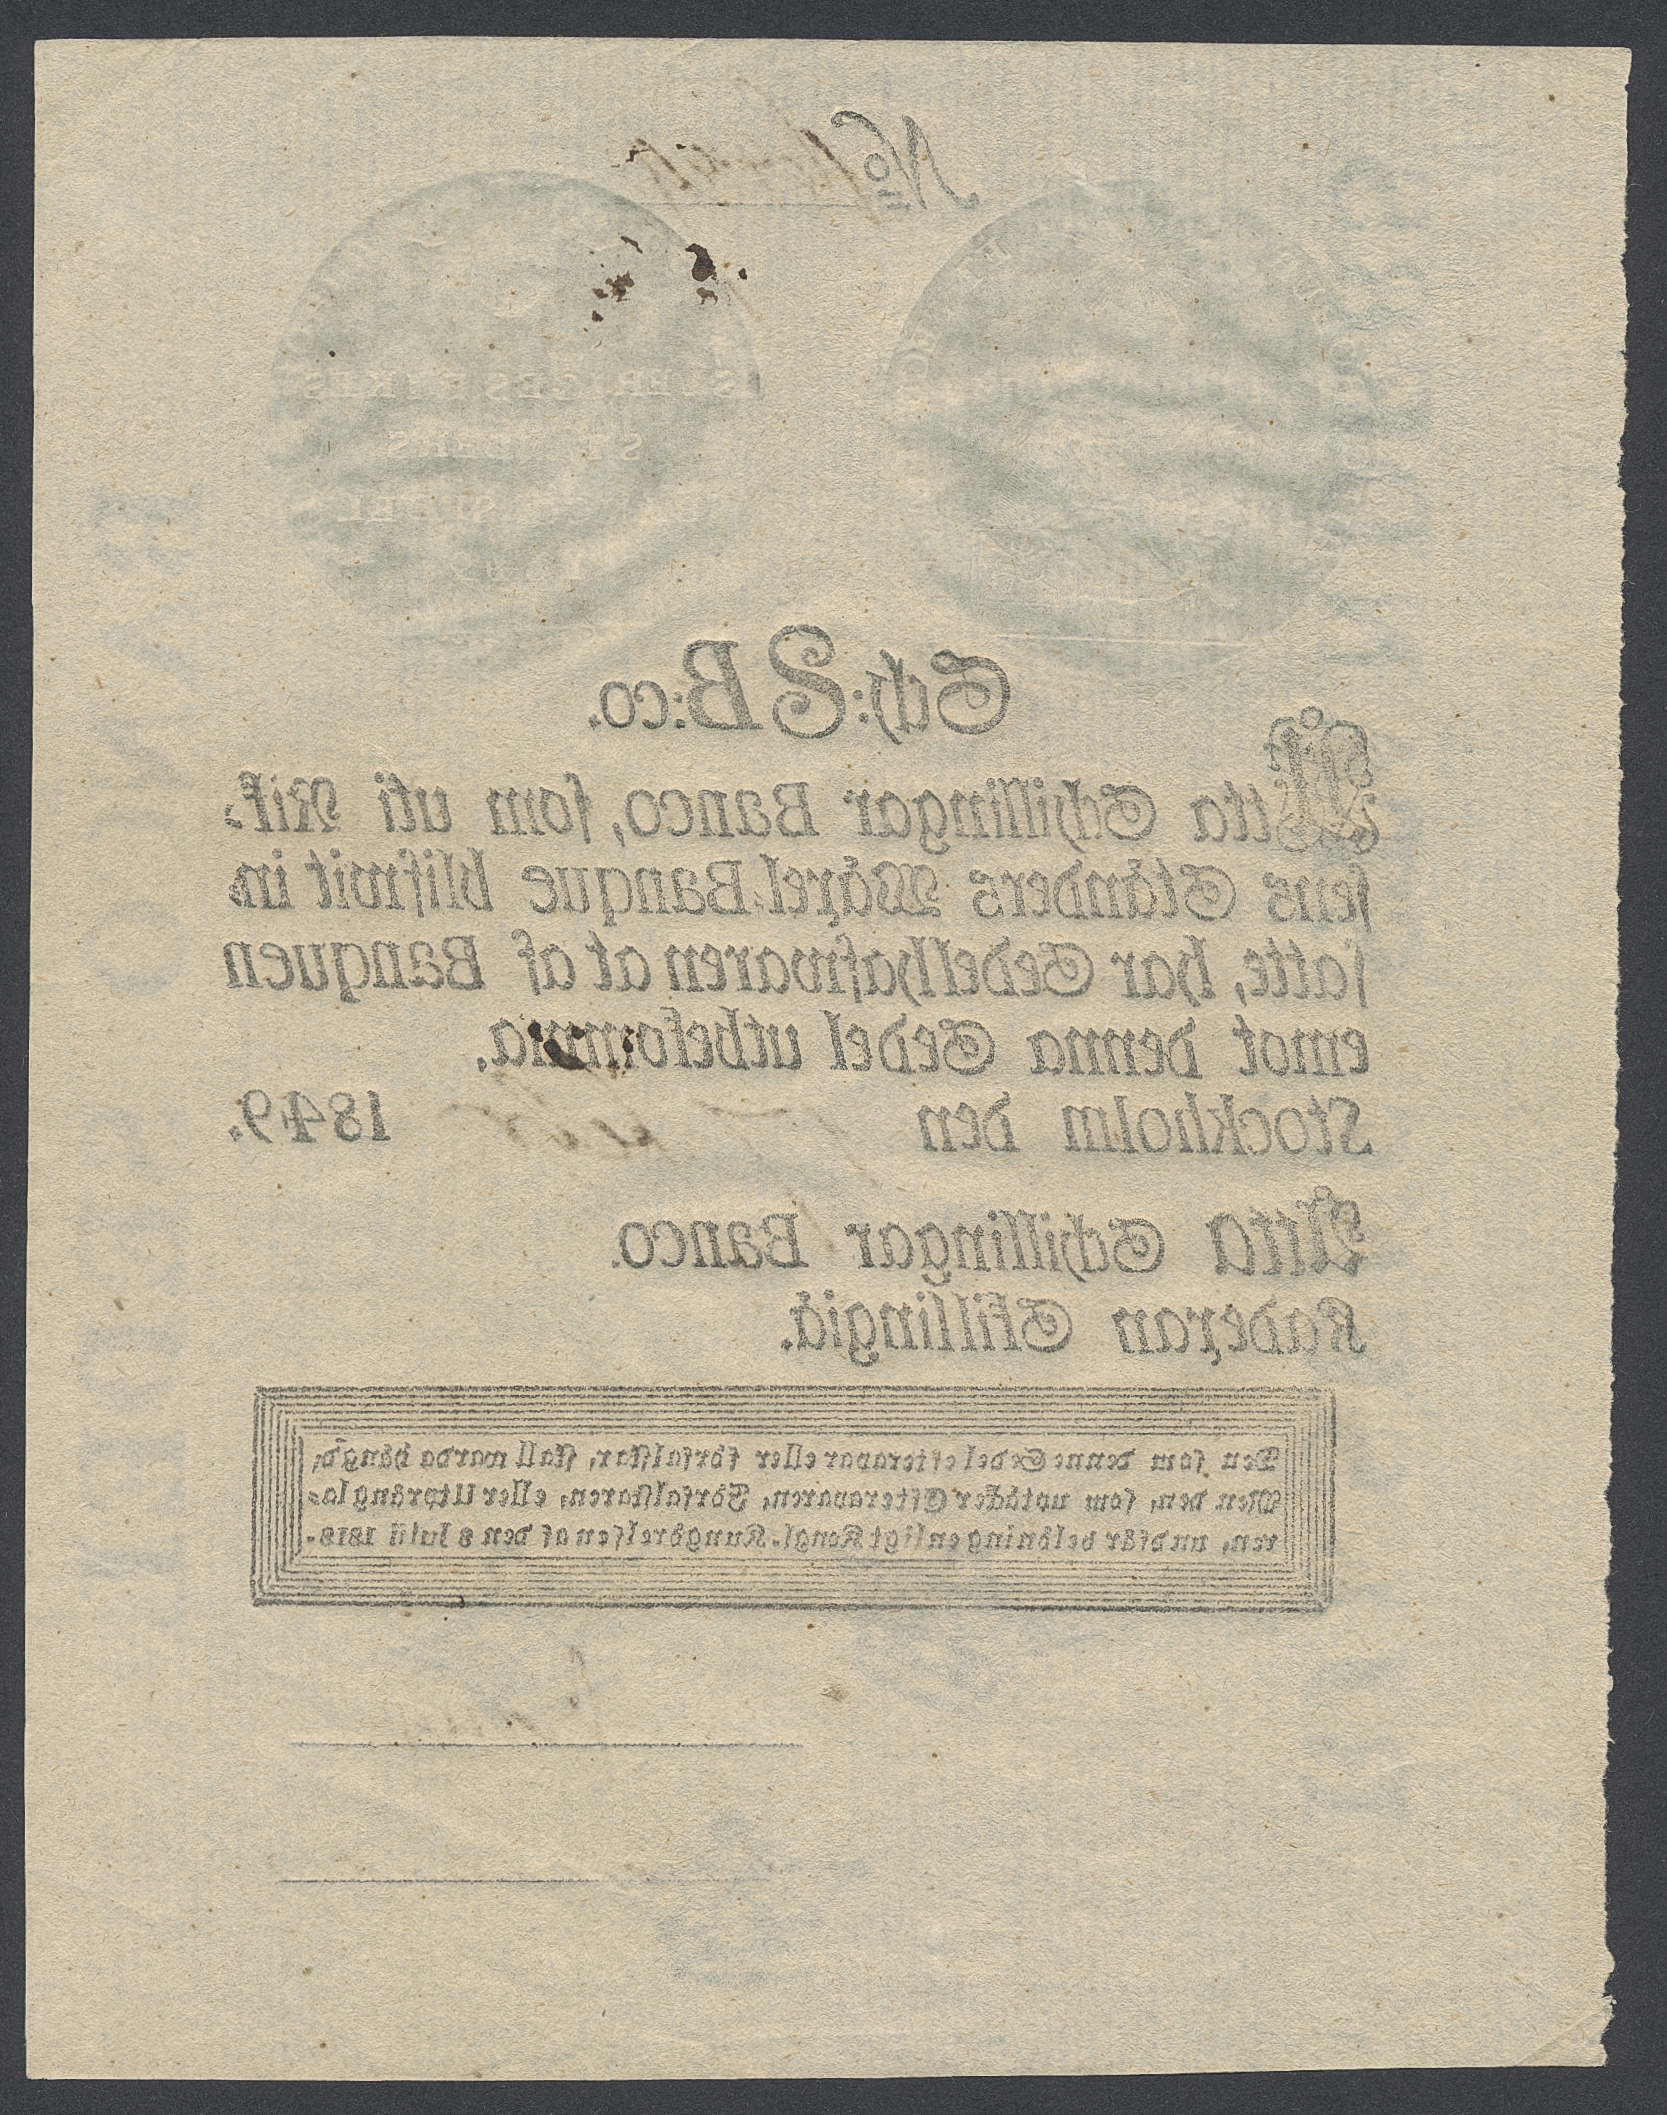 No
SVERIGES RIKES
STÄNDERS
Sch: 8 B:co.
Åtta Schillingar Banco, som uti Rik-
sens Ständers Wäxel-Banque blifwit in-
satte, har Sedelhafwaren at af Banquen
emot denna Sedel utbekomma.
Stockholm den 1849.
Åtta Schillingar Banco.
Kaderan Skillingiä.
Den som denne Sedel efterapar eller förfalskar, skall warda hängd;
Men den, som uptäcker Efteraparen, Förfalskaren, eller Utprångla-
ren, undfår belöning enligt Kongl. Kungörelsen af den 8 Julii 1818.